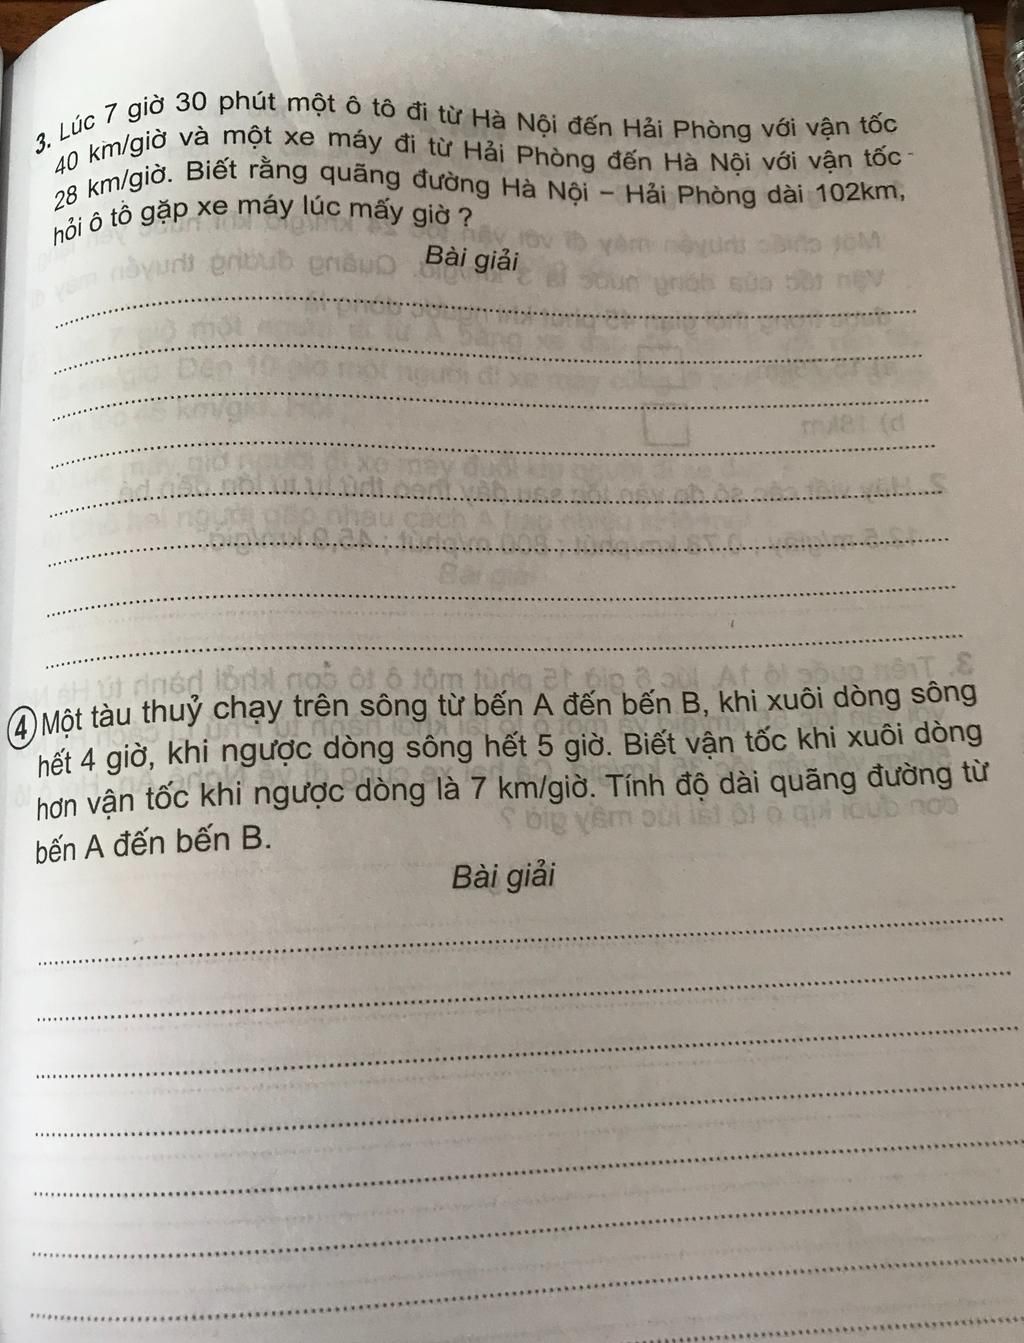 3. Lúc 7 giờ 30 phút một ô tô đi từ Hà Nội đến Hải Phòng với vận tốc
40 km/giờ và một xe máy đi từ Hải Phòng đến Hà Nội với vận tốc
28 km/giờ. Biết rằng quãng đường Hà Nội – Hải Phòng dài 102km,
hỏi ô tô gặp xe máy lúc mấy giờ ?
Bài giải
4 Một tàu thuỷ chạy trên sông từ bến A đến bến B, khi xuôi dòng sông
hết 4 giờ, khi ngược dòng sông hết 5 giờ. Biết vận tốc khi xuôi dòng
hơn vận tốc khi ngược dòng là 7 km/giờ. Tính độ dài quãng đường từ
bến A đến bến B.
Bài giải